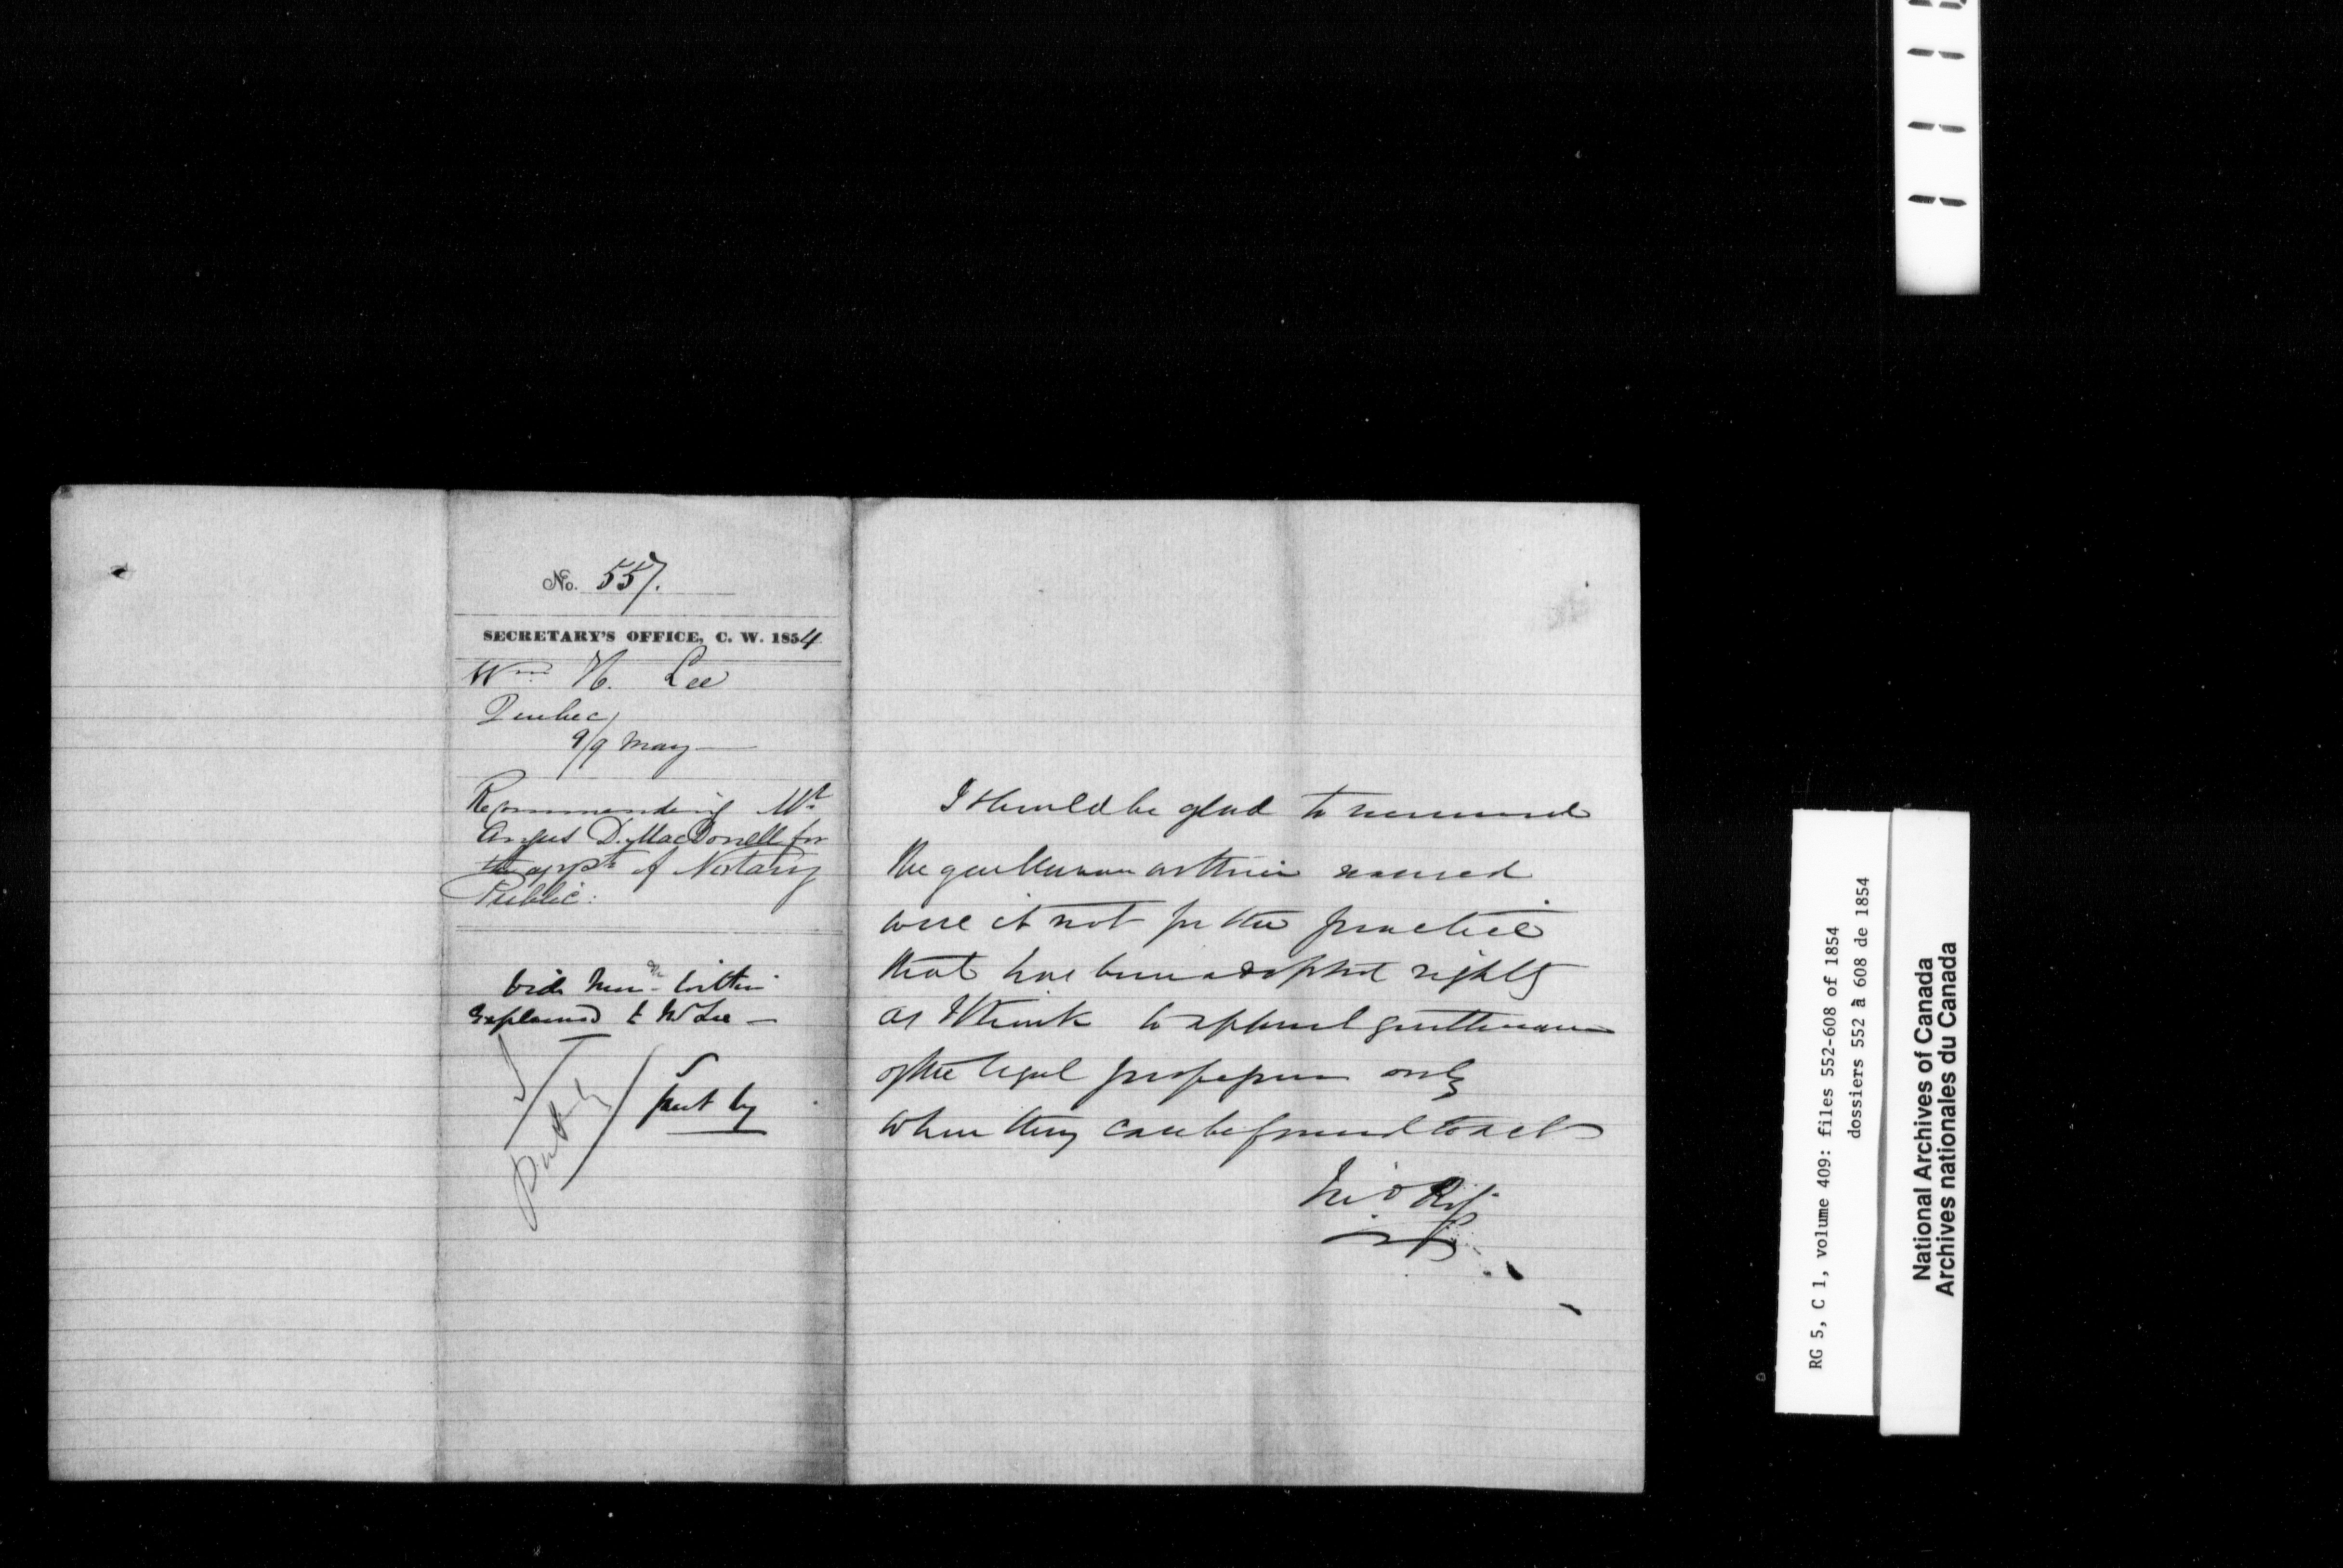 No. 557.
SECRETARY'S OFFICE, C. W. 1854
Wm H. Lee
Quebec
9/9 May
Recommending Mr
Angus D. MacDonell for
the appt of Notary
Public.
Vide Mem. within
Explained to Mr Lee —
put by
put by
I should be glad to recommend
the gentleman within named
were it not for the practice
that has been adopted rightly
as I think to appoint gentlemen
of the legal profession only
when they can be found to act
Jno Ro
RG 5, C 1, volume 409: files 552-608 of 1854
dossiers 552 à 608 de 1854
National Archives of Canada
Archives nationales du Canada